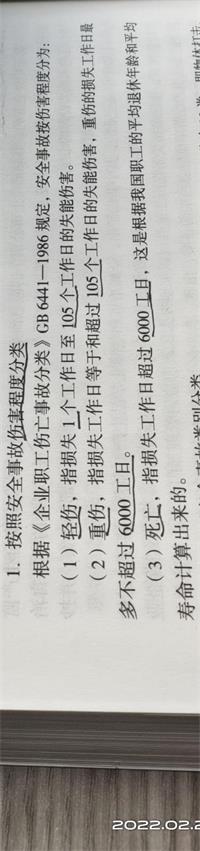 1. 按照安全事故伤害程度分类
根据《企业职工伤亡事故分类》GB 6441—1986 规定，安全事故按伤害程度分为：
（1）轻伤，指损失 1 个工作日至 105 个工作日的失能伤害。
（2）重伤，指损失工作日等于和超过 105 个工作日的失能伤害，重伤的损失工作日最
多不超过 6000 工日。
（3）死亡，指损失工作日超过 6000 工日，这是根据我国职工的平均退休年龄和平均
寿命计算出来的。
2022.02.2